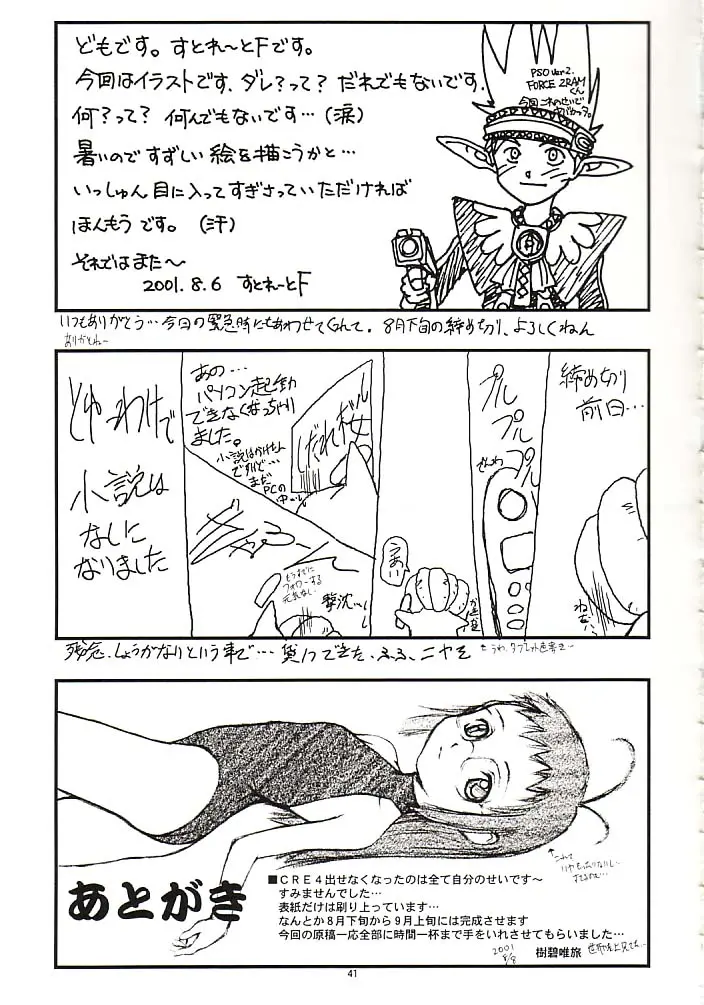 どもです。すとれーとFです。
今回はイラストです、ダレ?って? だれでもないです.
何?って? 何んでもないです…(涙)
暑いので すずしい 絵を描こうかと…
いっしゅん 目に入ってすぎさっていただければ
ほんもう です。(汗)
それではまた〜
2001.8.6 すとれーとF
PSO Ver2.
FORCE 2RAM
くん
今回 これのせいで
ヤバかった。
いつもありがとう…今日の緊急時にもあわせてくれて。8月下旬の締め切り、よろしくねん
ありがとね〜
締め切り
前日…
プル
プル
プル
でんわ
うまい
あの…
パソコン起動
できなくなっちゃい
ました。
小説はかけたん
ですけど…
まだ
PCの
中…
しだれ桜
もうすでに
フォローする
元気なし
撃沈…
とゆーわけで
小説は
なしに
なりました
残念、しょうがないという事で… 貸1つできた、ふふ、ニヤそ
あとがき
■CRE4出せなくなったのは全て自分のせいです〜
すみませんでした…
表紙だけは刷り上っています…
なんとか8月下旬から9月上旬には完成させます
今回の原稿一応全部に時間一杯まで手をいれさせてもらいました…
2001
8/8
樹碧唯旅
41